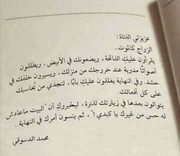 عزيزتي الفتاة:
الزواج كالموت..
يتراوون عليك الفاتحة، ويضعونك في الأبيض، ويطلقون
أصواتًا مدوية عند خروجك من منزلك، ويسيرون خلفك في
حشد. وفي النهاية يغلقون عليكِ بابًا، لتجدي من يحاسبك
على كل أفعالك.
يتوالون بعدها في زيارتك لفترة، ليخبروكِ أن "البيت ماعادش
له حس من غيرك يا كبدي"، ثم ينسون أمرك في النهاية.
محمد الدسوقي